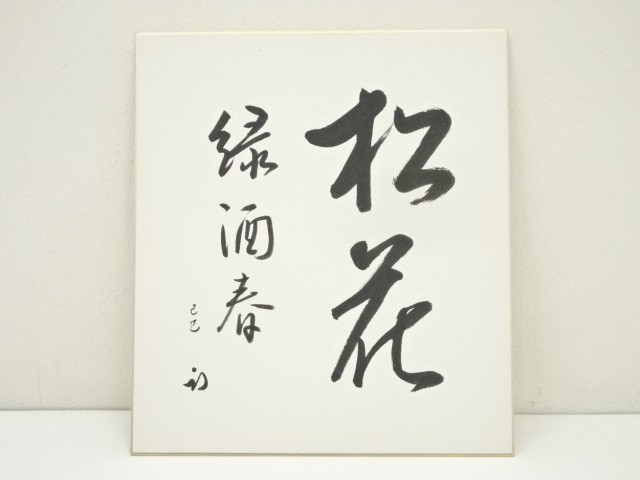 松花
緑酒春
己巳